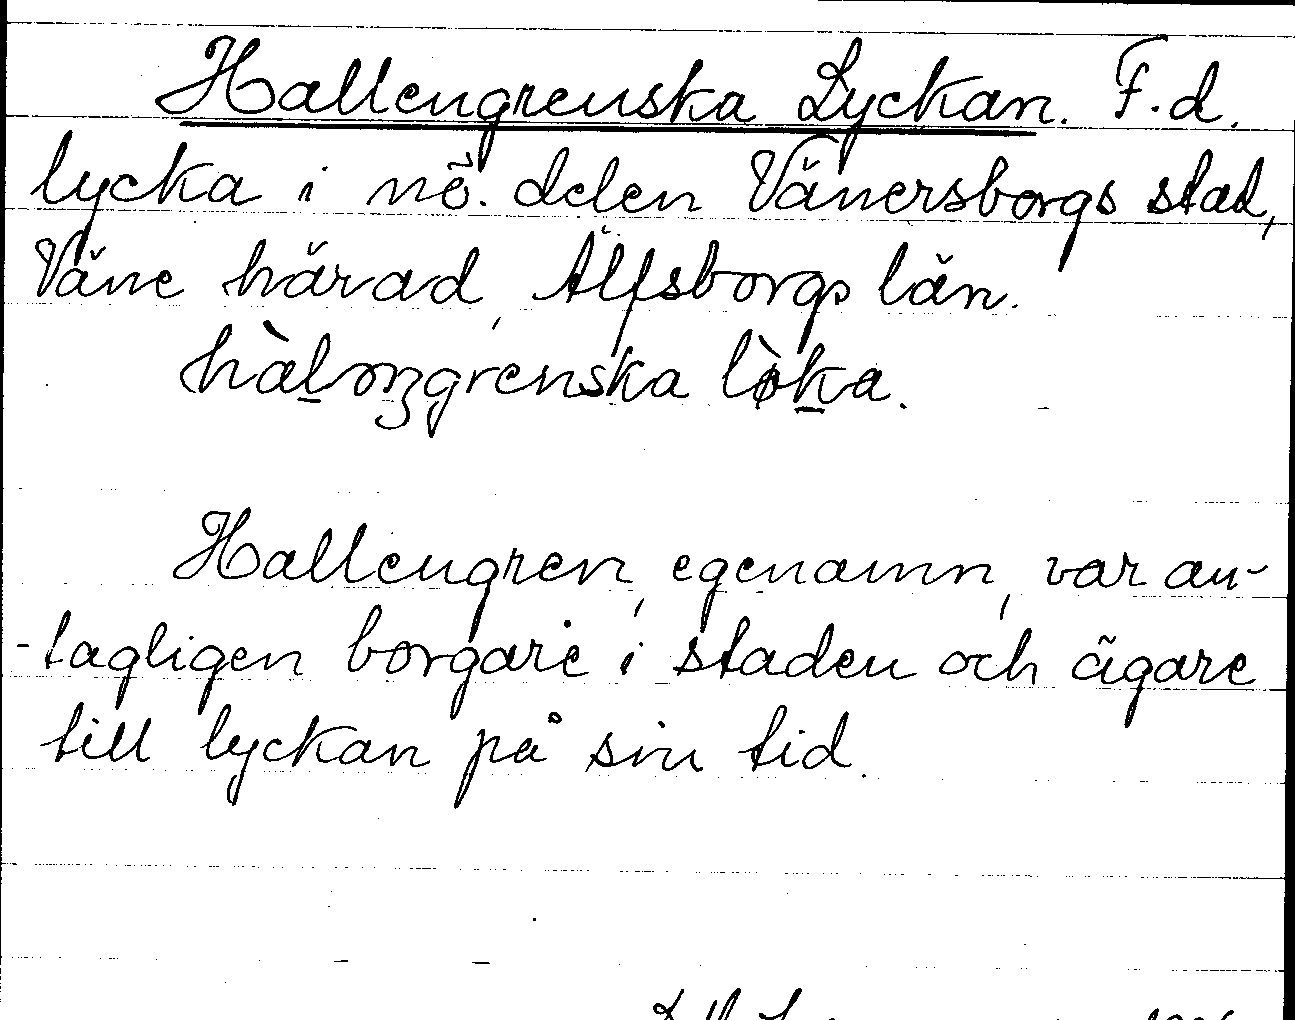 Hallengrenska Lyckan. F.d.
lycka i nö. delen Vänersborgs stad,
Väne härad, Älfsborgs län.
hàləngrenska lø̀ka.
Hallengren, egenamn, var an-
-tagligen borgare i staden och ägare
till lyckan på sin tid.